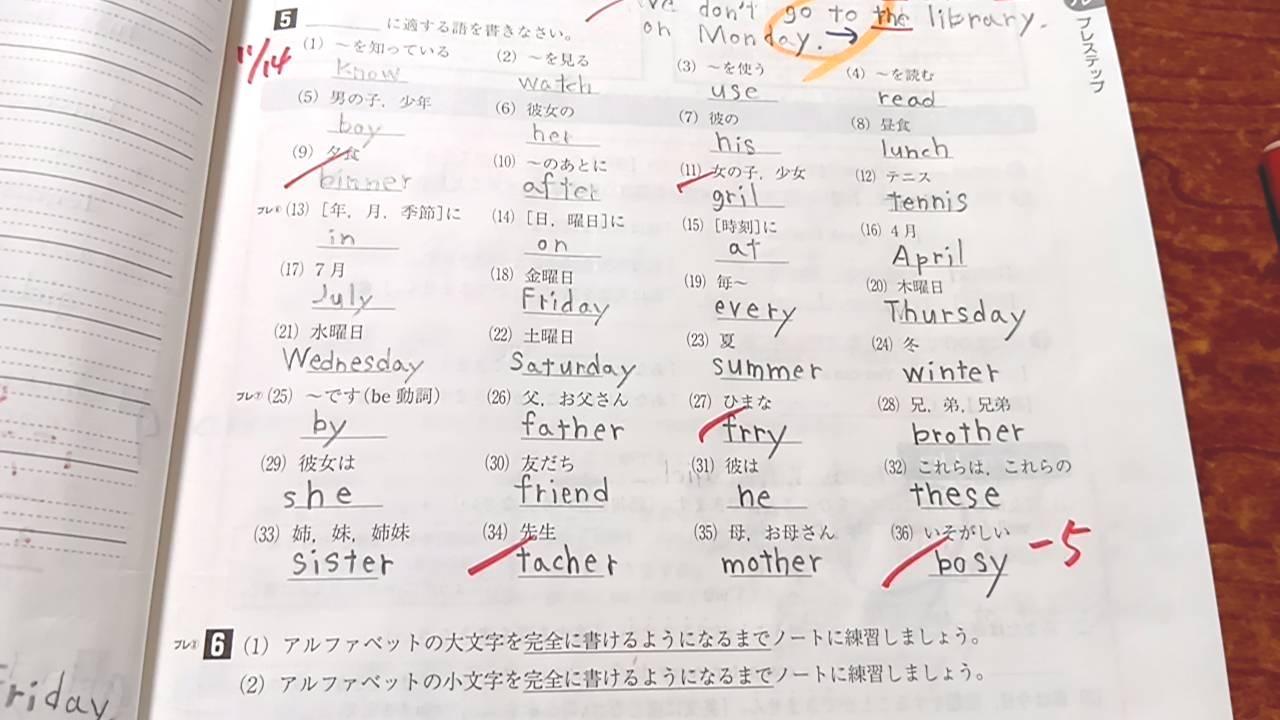 've don't go to the library.
on Monday. →
プレステップ
5 ______ に適する語を書きなさい。
11/14
(1) ～を知っている (2) ～を見る (3) ～を使う (4) ～を読む
know watch use read
(5) 男の子，少年 (6) 彼女の (7) 彼の (8) 昼食
boy her his lunch
(9) 夕食 (10) ～のあとに (11) 女の子，少女 (12) テニス
binner after gril tennis
(13) [年，月，季節]に (14) [日，曜日]に (15) [時刻]に (16) 4月
in on at April
(17) 7月 (18) 金曜日 (19) 毎～ (20) 木曜日
July Friday every Thursday
(21) 水曜日 (22) 土曜日 (23) 夏 (24) 冬
Wednesday Saturday summer winter
プレ⑦ (25) ～です(be 動詞) (26) 父，お父さん (27) ひまな (28) 兄，弟，兄弟
by father frry brother
(29) 彼女は (30) 友だち (31) 彼は (32) これらは，これらの
she friend he these
(33) 姉，妹，姉妹 (34) 先生 (35) 母，お母さん (36) いそがしい
sister tacher mother bosy -5
6 (1) アルファベットの大文字を完全に書けるようになるまでノートに練習しましょう。
(2) アルファベットの小文字を完全に書けるようになるまでノートに練習しましょう。
Friday